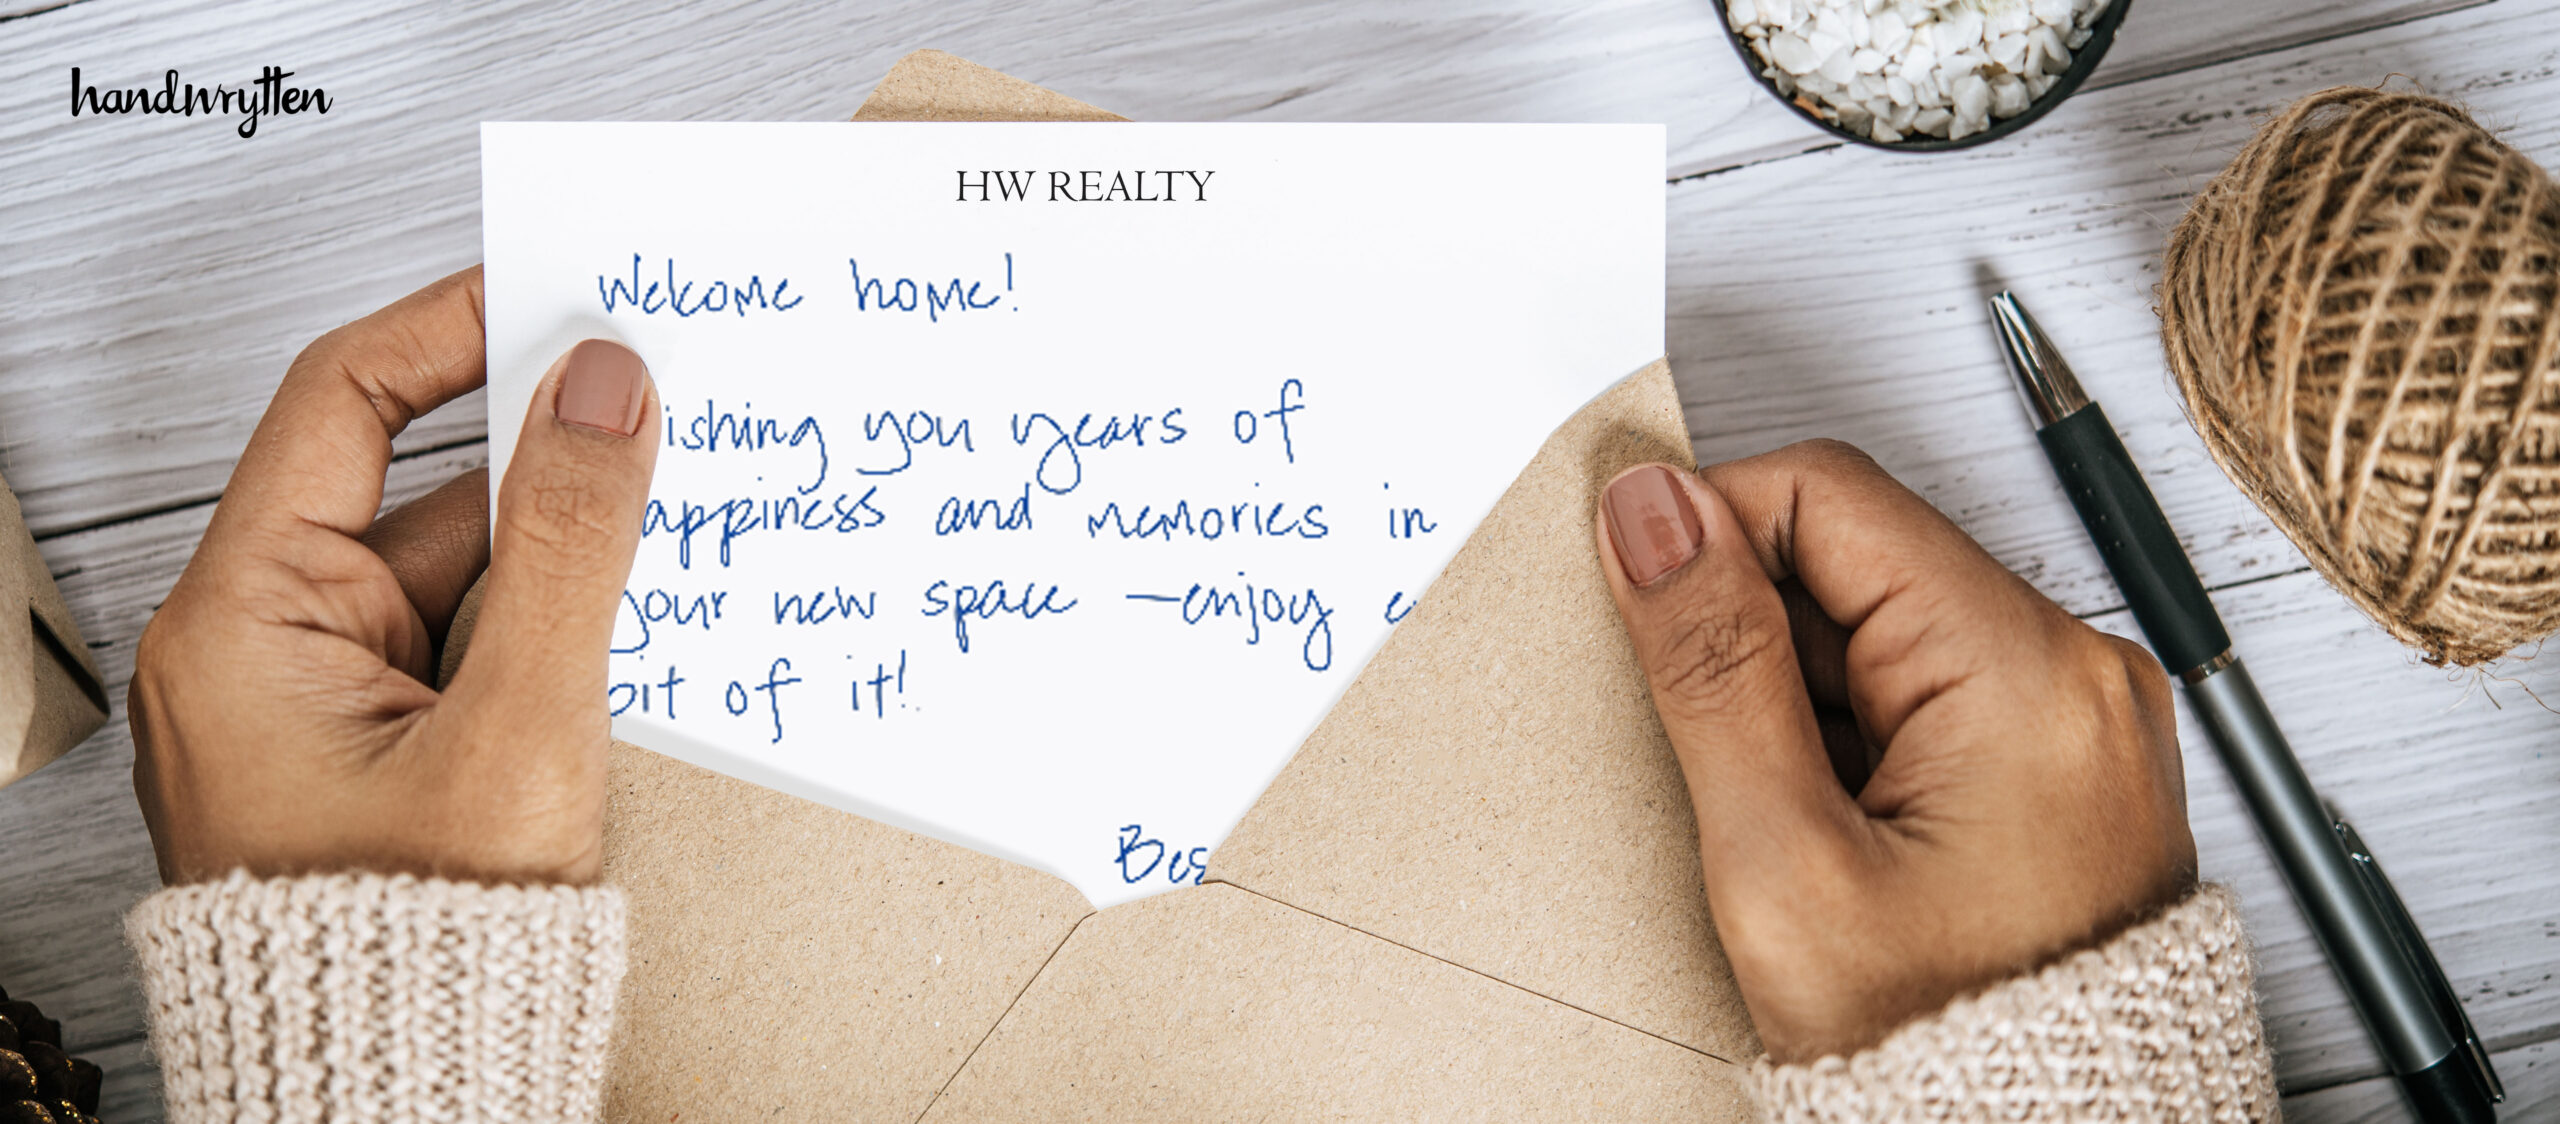 handwrytten
HW REALTY
Welcome home!
ishing you years of
appiness and memories in
your new space —enjoy e
bit of it!
Bes